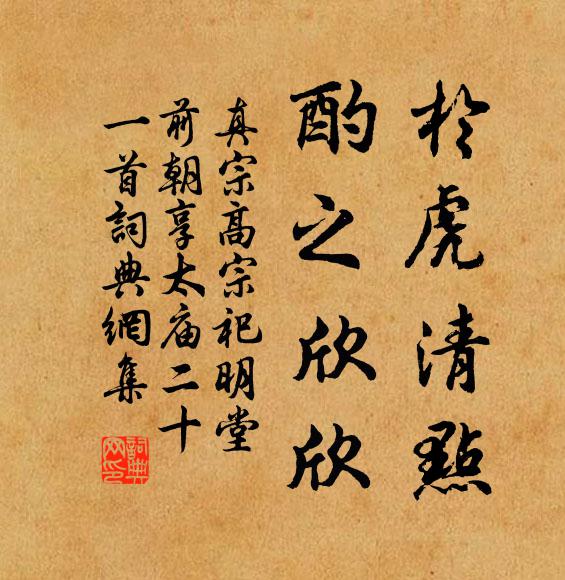 於虎清點
酌之欣欣
真宗高宗祀明堂
前朝享太庙二十
一首詞典網集